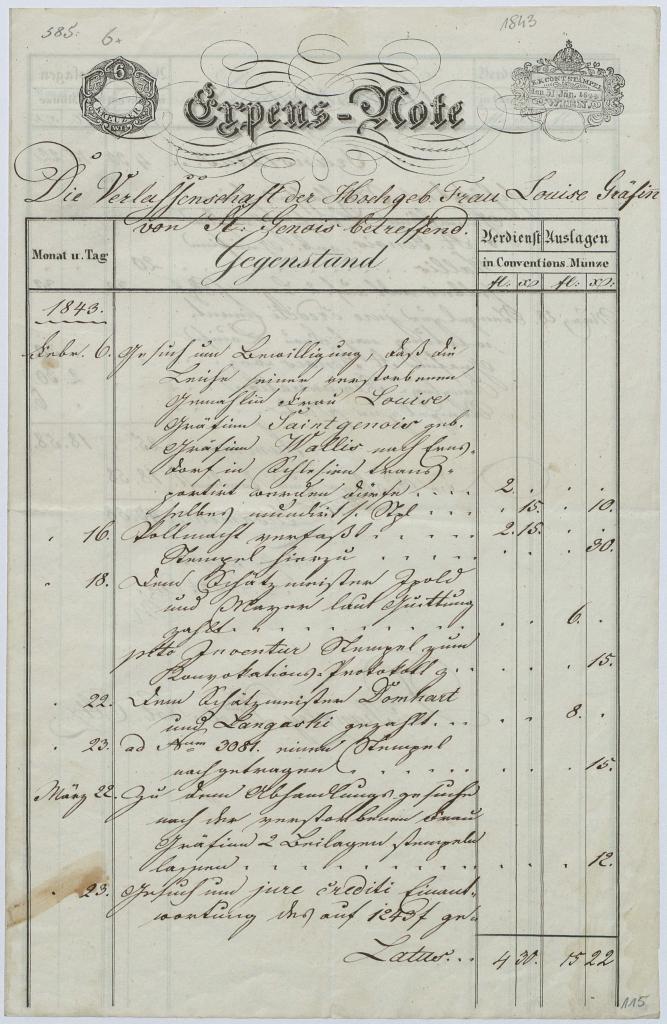 585.
6.
1843
6
KREUTZER
WIEN
K.K. CONT. STÄMPEL
den 31 Jän. 1844
WIEN.
Expens-Note
Die Verlassenschaft der Hochgeb. Frau Louise Gräfin
von St. Genois betreffend.
Monat u. Tag
Gegenstand
Verdienst Auslagen
in Conventions. Münze
fl: xr fl: xr.
1843.
Febr. 6. Gesuch um Bewilligung, daß die
Leiche seiner verstorbenen
Gemahlin Frau Louise
Gräfinn Saintgenois geb.
Gräfinn Wallis nach Erns-
dorf in Schlesien trans-
portirt werden dürfe .... 2. . . .
selbes mundirt /: Stpl ... . 15. . 10.
" 16. Vollmacht verfaßt . . . . 2. 15. . .
Stempel hierzu . . . . . . . . 30.
" 18. Dem Schätzmeister
und Mayer laut Quittung
zahlt . . . . . . . . . 6. .
pcto Inventur Stempel zum
Konvokations-Protokoll . . . . . 15.
" 22. Dem Schätzmeister Domhart
und Langaski gezahlt. . . . . 8. .
" 23. ad Num 3081. einen Stempel
nachgetragen . . . . . . . . 15.
März 22. Zu dem Abhandlungsgesuche
nach der verstorbenen Frau
Gräfinn 2 Beilagen stempeln
lassen . . . . . . . . . . 12.
" 23. Gesuch um jure crediti Einant-
wortung des auf 1243 f ge-
Latus... 4 30. 15 22
115